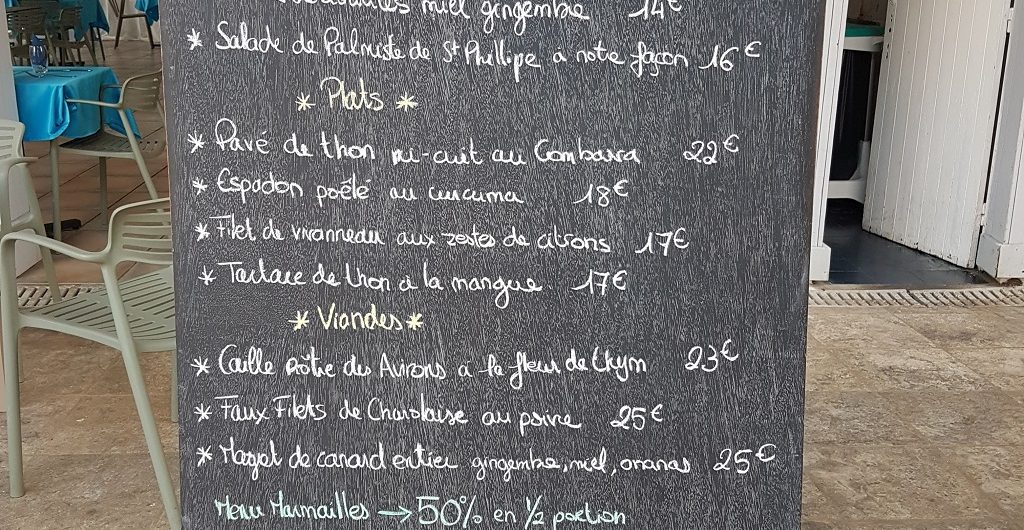 miel gingembre 14€
* Salade de Palmiste de St Phillipe à notre façon 16€
* Plats *
* Pavé de thon mi-cuit au Combava 22€
* Espadon poêlé au curcuma 18€
* Filet de vivanneau aux zestes de citrons 17€
* Tartare de thon à la mangue 17€
* Viandes *
* Caille rôtie des Avirons à la fleur de thym 23€
* Faux Filets de Charolaise au poivre 25€
* Magret de canard entier gingembre, miel, ananas 25€
Menu Marmailles → 50% en 1/2 portion